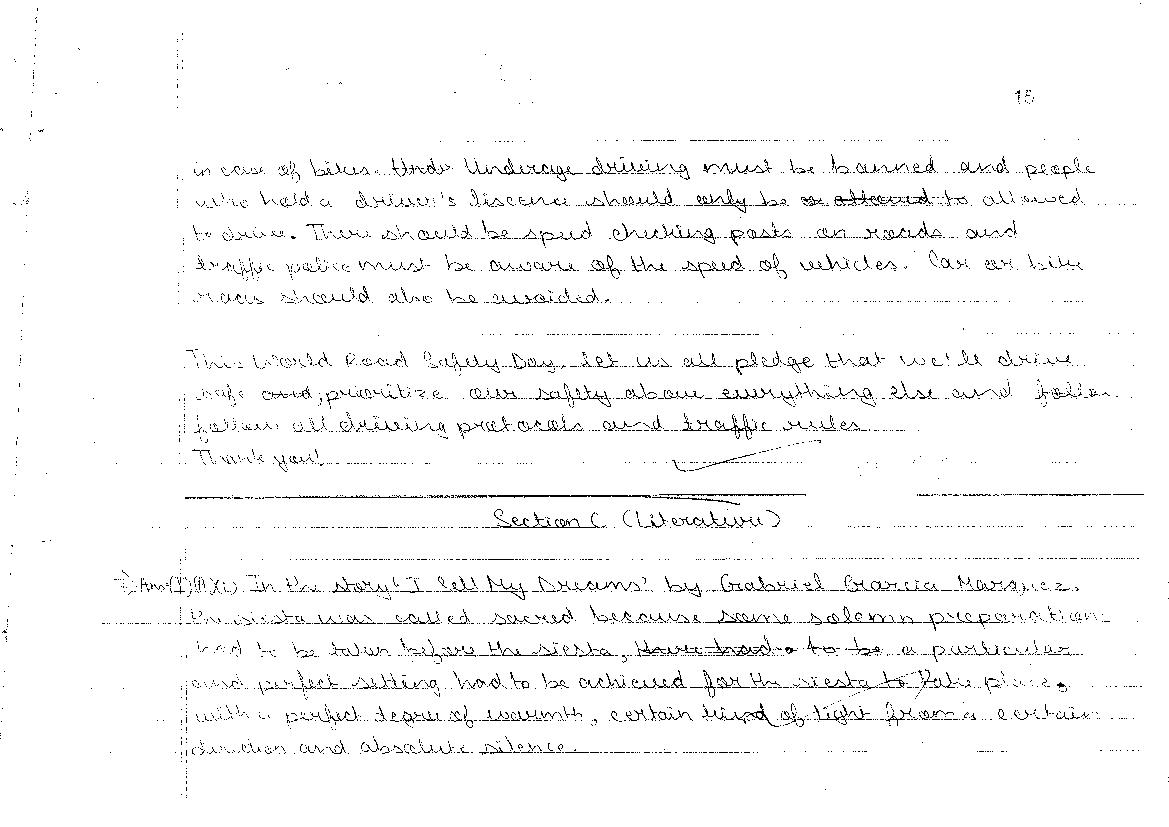 15
in case of bikes. Unde Underage driving must be banned and people
who hold a driver's liscence should only be is allowed to allowed
to drive. There should be speed checking posts on roads and
traffic police must be aware of the speed of vehicles. Car or bike
races should also be avoided.
This World Road Safety Day, let us all pledge that we'll drive
safe and, prioritize our safety above everything else and follo
follow all driving protocols and traffic rules
Thank you!
Section C (Literature)
7) Ans (I) (A) (i) In the story 'I Sell My Dreams' by Gabriel Garcia Marquez,
the siesta was called sacred because some solemn preparation
had to be taken before the siesta, to be a particular
and perfect setting had to be achieved for the siesta to take place,
with a perfect degree of warmth, certain kind of light from a certain
direction and absolute silence.